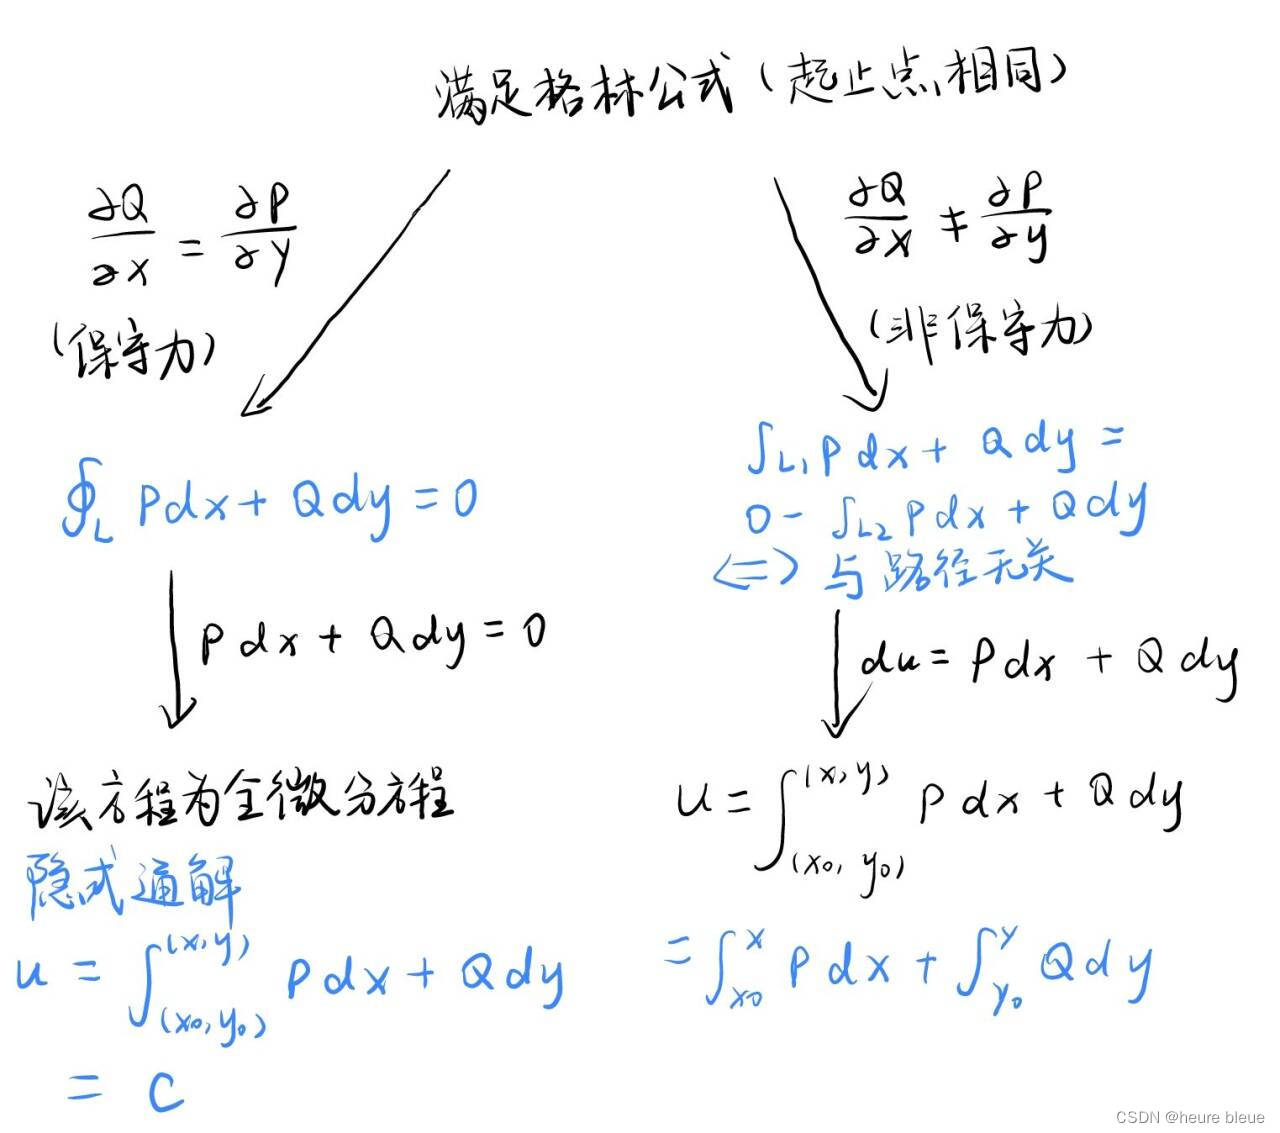 满足格林公式(起止点相同)
∂Q/∂x = ∂P/∂y
(保守力)
∮_L Pdx + Qdy = 0
Pdx + Qdy = 0
该方程为全微分方程
隐式通解
u = ∫_(x0,y0)^(x,y) Pdx + Qdy
= C
∂Q/∂x ≠ ∂P/∂y
(非保守力)
∫_L1 Pdx + Qdy =
0 - ∫_L2 Pdx + Qdy
<=> 与路径无关
du = Pdx + Qdy
u = ∫_(x0,y0)^(x,y) Pdx + Qdy
= ∫_x0^x Pdx + ∫_y0^y Qdy
CSDN @heure bleue